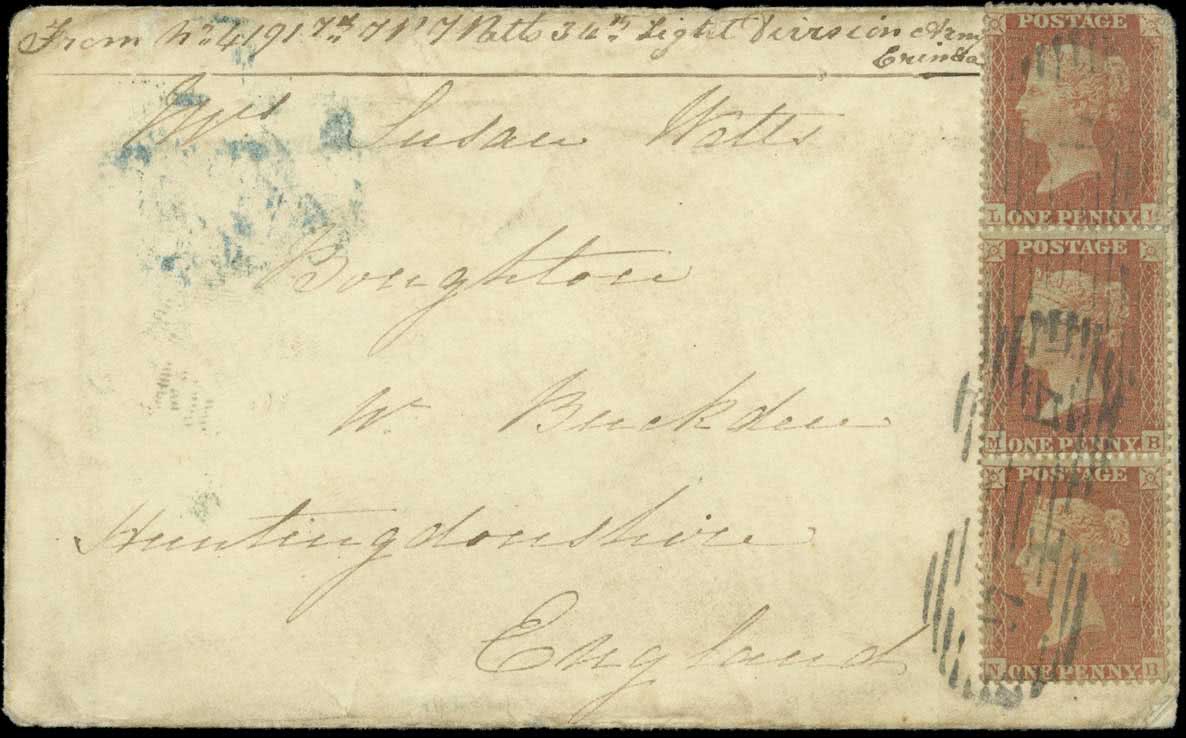 From No 4191 7th Watts 34th Light Division Army
Crimea
Mrs Susan Watts
Boughton
Nr Buckden
Huntingdonshire
England
POSTAGE
L ONE PENNY
POSTAGE
M ONE PENNY B
POSTAGE
N ONE PENNY B